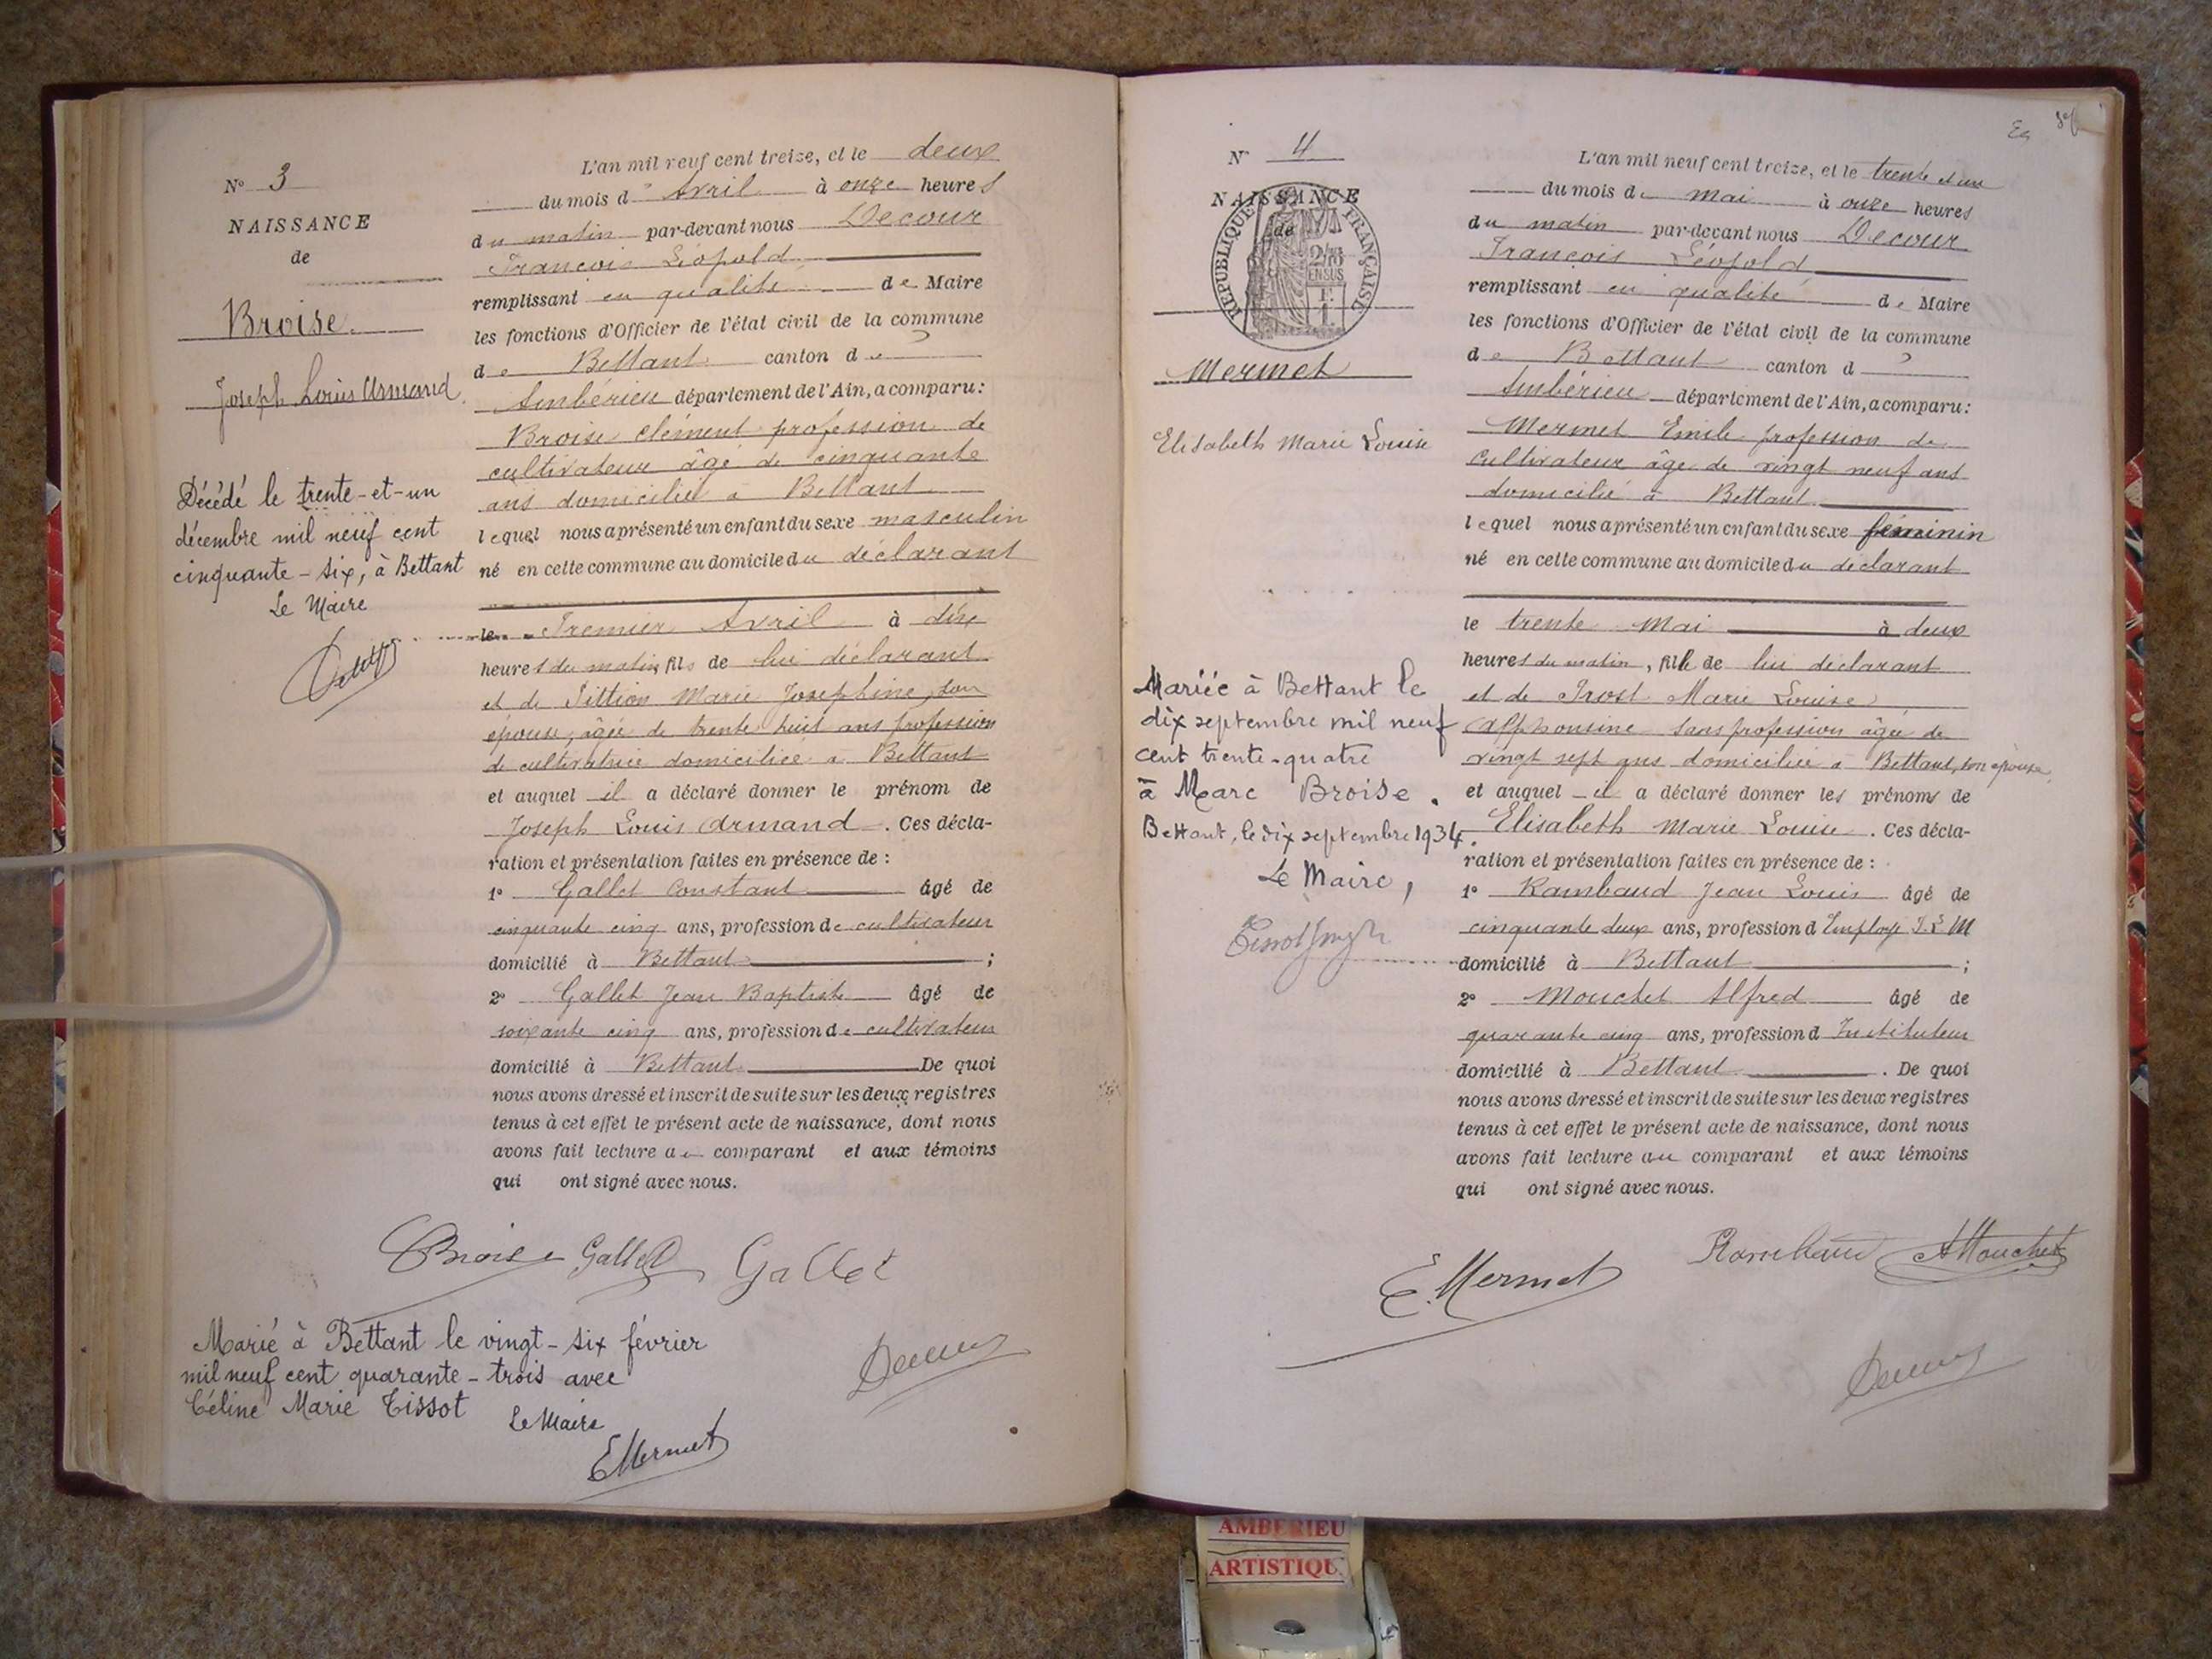 N° 3
NAISSANCE
de
Broise
Joseph Louis Armand
Décédé le trente-et-un
décembre mil neuf cent
cinquante-six, à Bettant
Le Maire
L'an mil neuf cent treize, et le deux
du mois d'Avril à onze heures
du matin par-devant nous Decour
François Léopold
remplissant en qualité de Maire
les fonctions d'Officier de l'état civil de la commune
de Bettant canton d
Ambérieu département de l'Ain, a comparu :
Broise Clément profession de
cultivateur âgé de cinquante
ans domicilié à Bettant
lequel nous a présenté un enfant du sexe masculin
né en cette commune au domicile du déclarant
le Premier Avril à dix
heures du matin, fils de lui déclarant
et de Marie Josephine, son
épouse, âgée de trente huit ans profession
de cultivatrice domiciliée à Bettant
et auquel il a déclaré donner le prénom de
Joseph Louis Armand. Ces décla-
ration et présentation faites en présence de :
1° Gallet Constant âgé de
cinquante cinq ans, profession de cultivateur
domicilié à Bettant ;
2° Gallet Jean Baptiste âgé de
soixante cinq ans, profession de cultivateur
domicilié à Bettant De quoi
nous avons dressé et inscrit de suite sur les deux registres
tenus à cet effet le présent acte de naissance, dont nous
avons fait lecture au comparant et aux témoins
qui ont signé avec nous.
Broise Gallet Gallet
Decour
Marié à Bettant le vingt-six février
mil neuf cent quarante-trois avec
Céline Marie Tissot
Le Maire
E Mermet
N° 4
NAISSANCE
de
REPUBLIQUE FRANÇAISE
Mermet
Elisabeth Marie Louise
Mariée à Bettant le
dix septembre mil neuf
cent trente-quatre
à Marc Broise.
Bettant, le dix septembre 1934.
Le Maire,
L'an mil neuf cent treize, et le trente et un
du mois de mai à onze heures
du matin par-devant nous Decour
François Léopold
remplissant en qualité de Maire
les fonctions d'Officier de l'état civil de la commune
de Bettant canton d
Ambérieu département de l'Ain, a comparu :
Mermet Emile profession de
cultivateur âgé de vingt neuf ans
domicilié à Bettant
lequel nous a présenté un enfant du sexe féminin
né en cette commune au domicile du déclarant
le trente Mai à deux
heures du matin, fille de lui déclarant
et de Marie Louise
Alphonsine sans profession âgée de
vingt sept ans domiciliée à Bettant, son épouse
et auquel il a déclaré donner les prénoms de
Elisabeth Marie Louise. Ces décla-
ration et présentation faites en présence de :
1° Rambaud Jean Louis âgé de
cinquante deux ans, profession d'Employé
domicilié à Bettant ;
2° Mouchet Alfred âgé de
quarante cinq ans, profession d'Instituteur
domicilié à Bettant. De quoi
nous avons dressé et inscrit de suite sur les deux registres
tenus à cet effet le présent acte de naissance, dont nous
avons fait lecture au comparant et aux témoins
qui ont signé avec nous.
E. Mermet Rambaud A Mouchet
Decour
AMBERIEU
ARTISTIQU